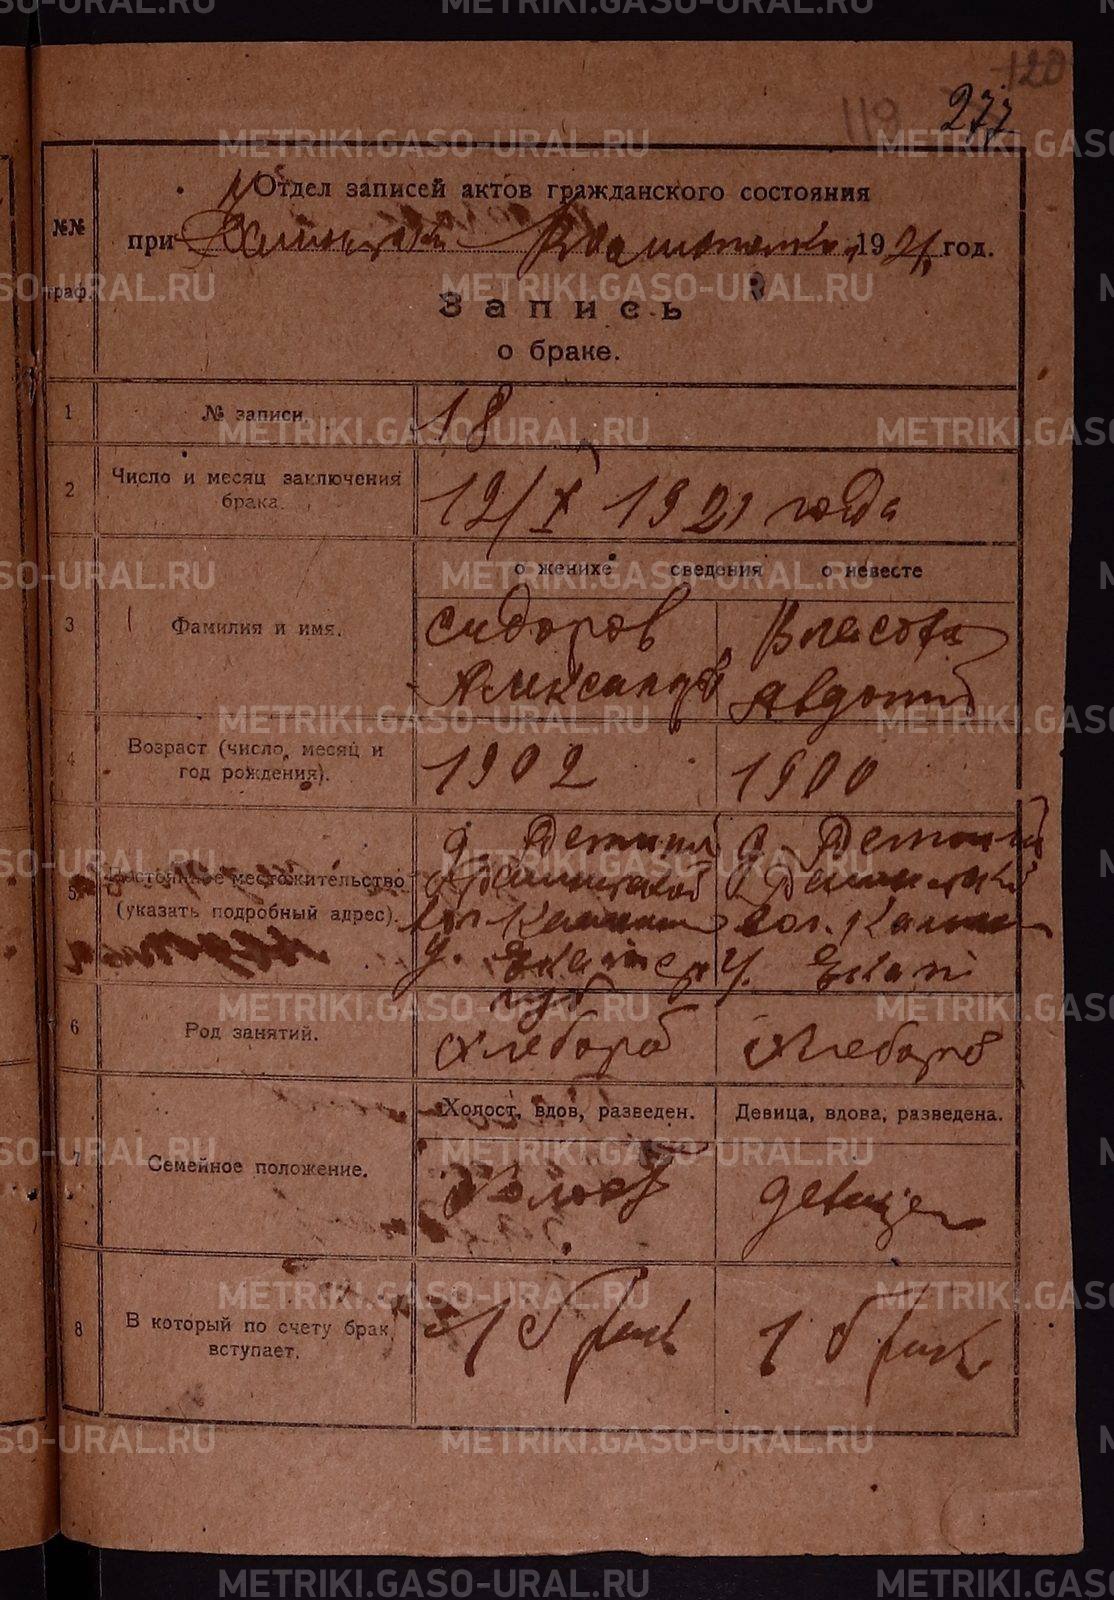 120
119 277
№№ граф.
Отдел записей актов гражданского состояния
при 1921 год.
Запись
о браке.
1 № записи. 18
2 Число и месяц заключения брака. 12/X 1921 года
о женихе сведения о невесте
3 Фамилия и имя.
Сидоров Власова
Александр Авдотия
4 Возраст (число, месяц и год рождения). 1902 1900
5 Постоянное местожительство (указать подробный адрес).
д. д.
вол. вол.
у. Екатер у. Екат
губ
6 Род занятий. Хлебороб Хлебороб
Холост, вдов, разведен. Девица, вдова, разведена.
7 Семейное положение. Холост девица
8 В который по счету брак вступает. 1 брак 1 брак
METRIKI.GASO-URAL.RU